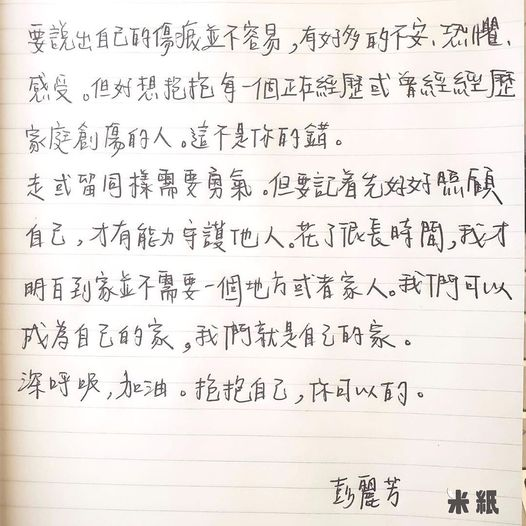 要說出自己的傷痕並不容易,有好多的不安、恐懼、
感受。但好想抱抱每一個正在經歷或曾經經歷
家庭創傷的人。這不是你的錯。
走或留同樣需要勇氣。但要記着先好好照顧
自己,才有能力守護他人。花了很長時間,我才
明白到家並不需要一個地方或者家人。我們可以
成為自己的家,我們就是自己的家。
深呼吸,加油。抱抱自己,你可以的。
彭麗芳
米紙